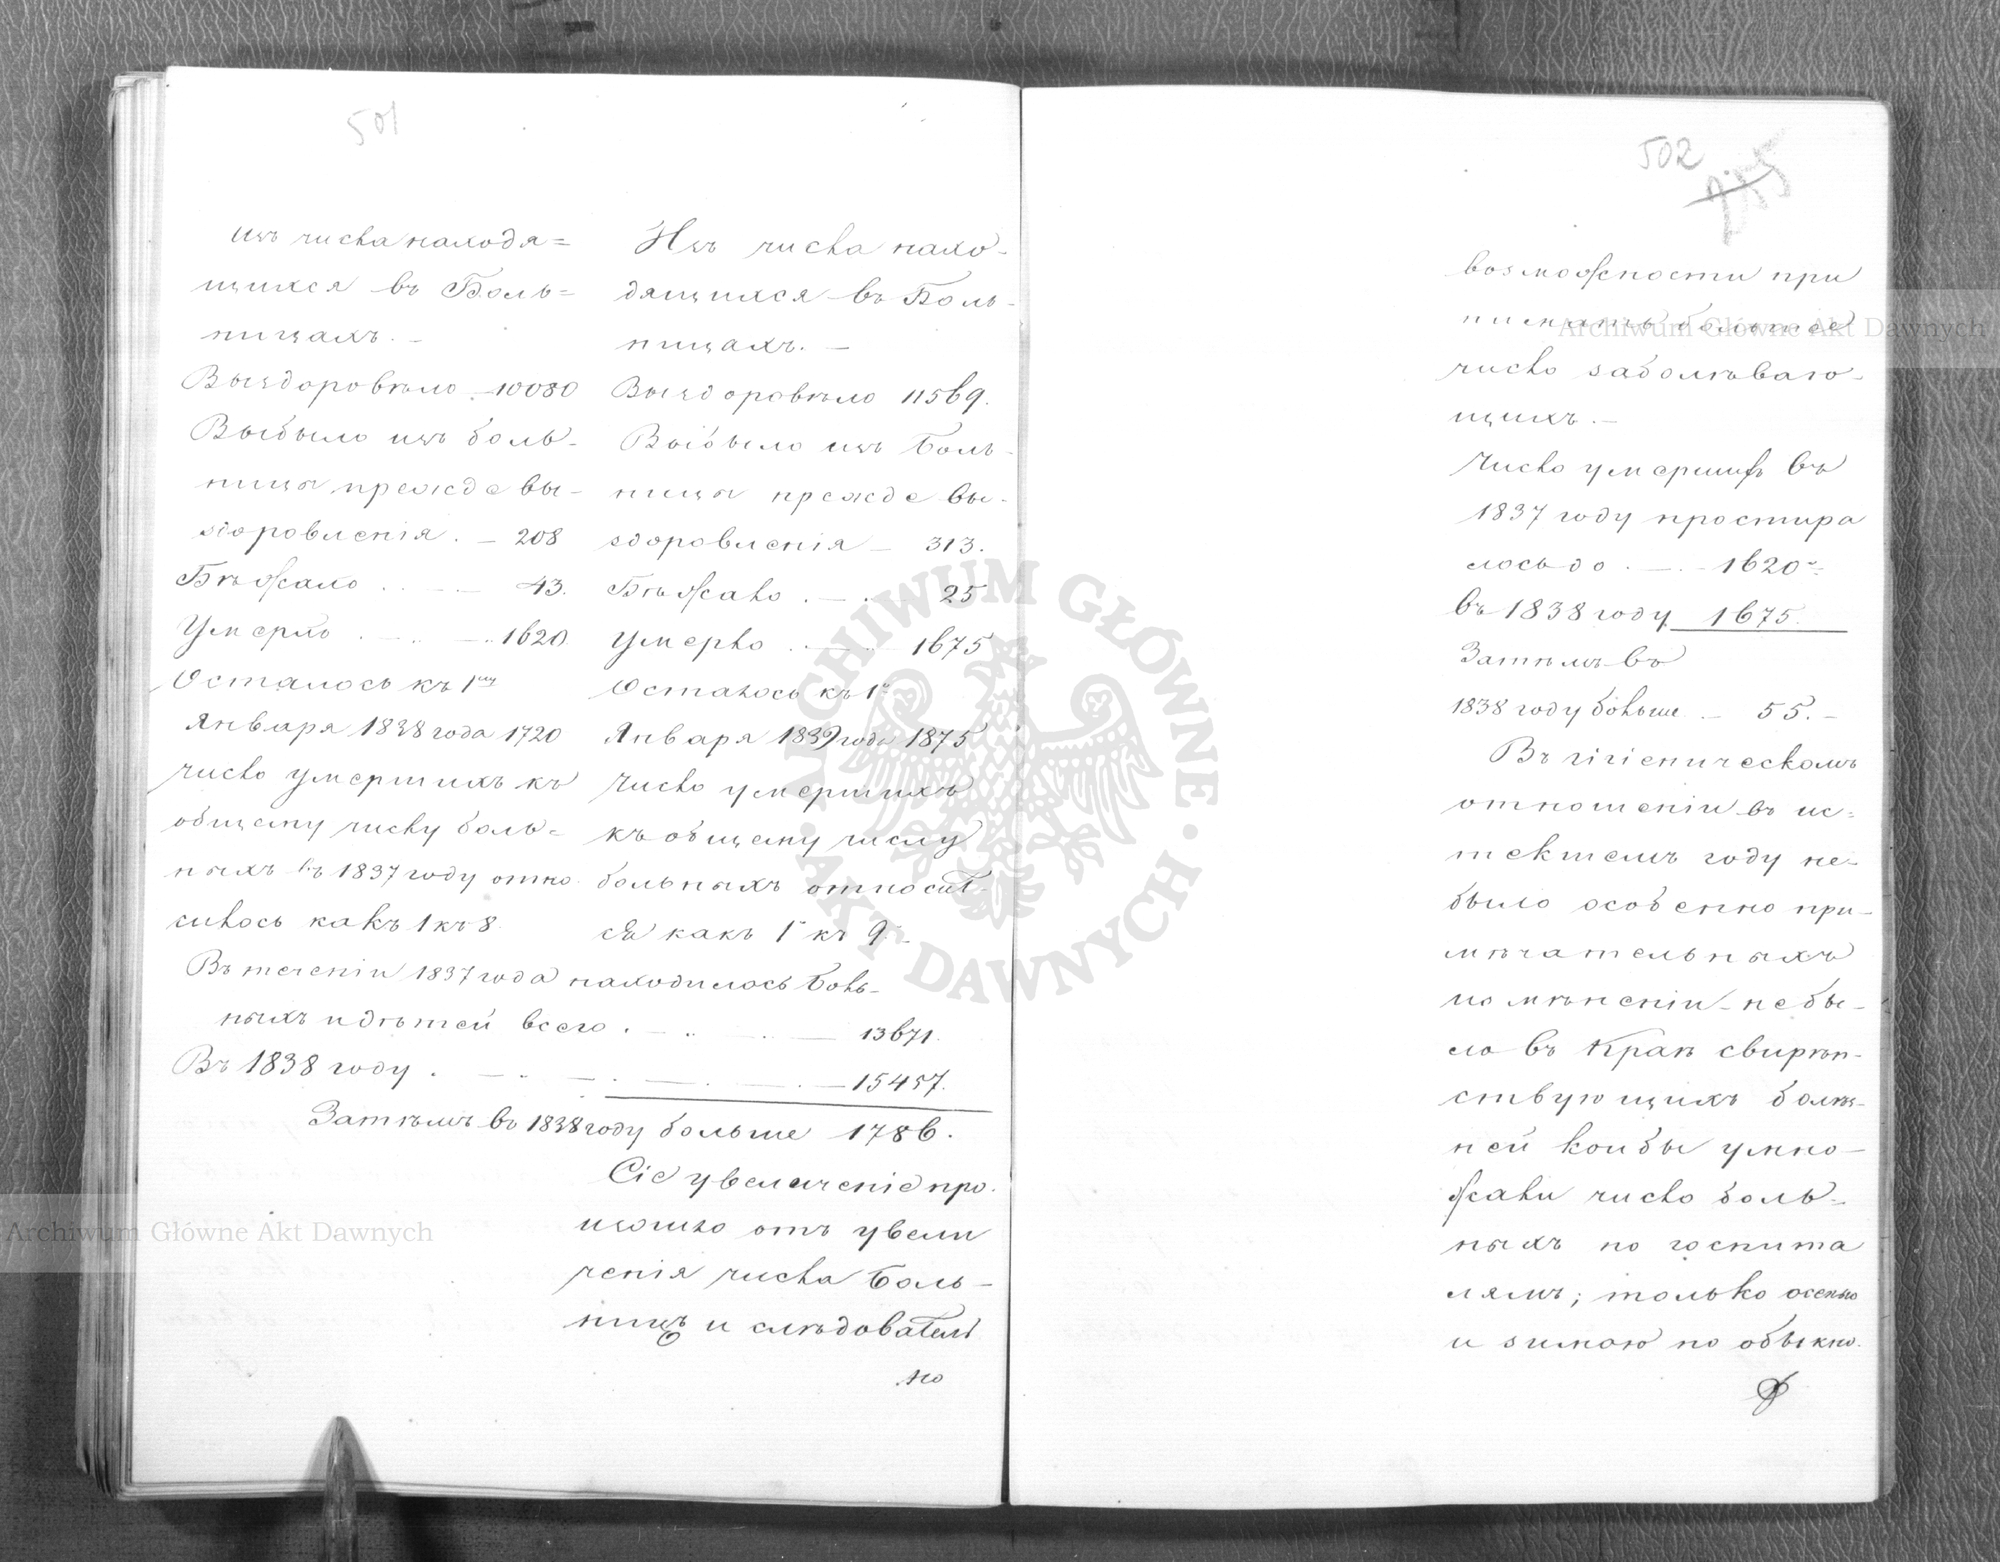 501
изъ числа находя=
щихся въ Боль=
ницахъ. —
Выздоровѣло — 10080
Выбыло изъ боль-
ницы прежде вы-
здоровленія . — 208
Бѣжало . . — — 43.
Умерло . — . . — . . 1620
Осталось къ 1му
Января 1838 года 1720
число умершихъ къ
общему числу боль=
ныхъ въ 1837 году отно-
силось какъ 1 къ 8.
Изъ числа нахо-
дящихся въ Боль-
ницахъ. —
Выздоровѣло 11569.
Выбыло изъ Боль-
ницы прежде вы-
здоровленія — 313.
Бѣжало . — . — 25
Умерло . — . . — 1675
Осталось къ 1
Января 1839 года 1875
Число умершихъ
къ общему числу
больныхъ относит-
ся какъ 1 къ 9.
Въ теченіи 1837 года находилось боль-
ныхъ и дѣтей всего . — . . — . . — 13671.
Въ 1838 году . — . . — . — . . — . — 15457.
Затѣмъ въ 1838 году больше 1786.
Сіе увеличеніе про-
изошло отъ увели
ченія числа Боль-
ницъ и слѣдователь
но
502
возможности при
нимать большее
число заболѣваю-
щихъ. —
Число умершихъ въ
1837 году простира
лось до . — . - 1620
въ 1838 году 1675.
Затѣмъ въ
1838 году больше — 55. —
Въ гигіеническомъ
отношеніи въ ис=
текшемъ году не-
было особенно при-
мѣчательныхъ
измѣненій — не бы-
ло въ Краѣ свирѣп-
ствующихъ болѣз-
ней кои бы умно-
жали число боль-
ныхъ по госпита
лямъ; только осенью
и зимою по обыкно-
Archiwum Główne Akt Dawnych
Archiwum Główne Akt Dawnych
ARCHIWUM GŁÓWNE · AKT DAWNYCH ·